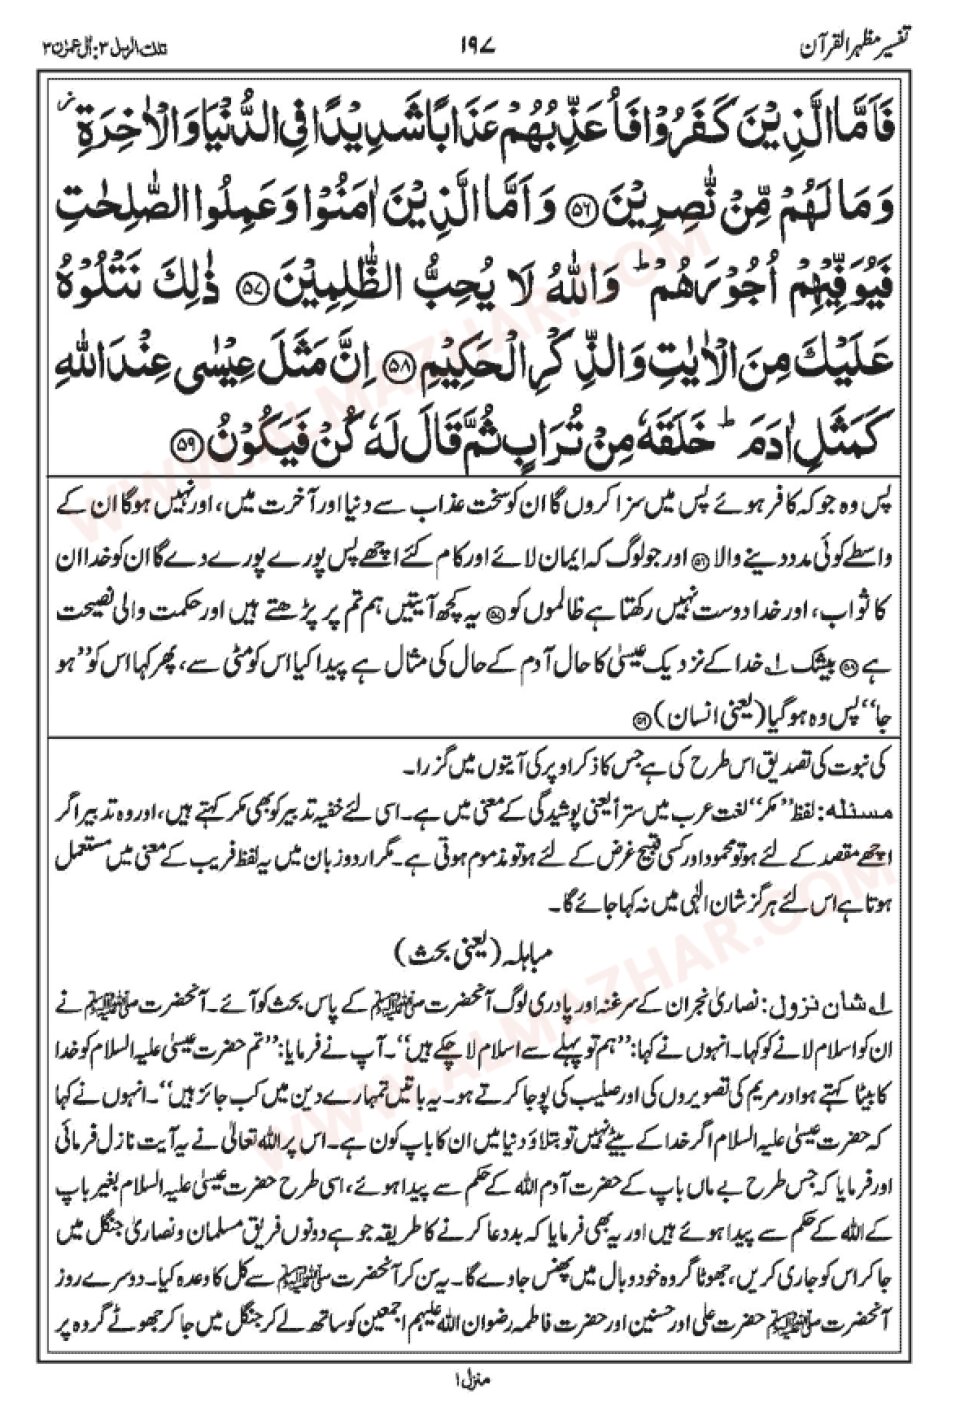 تفسیر مظہر القرآن
۱۹۷
تلك الرسل ۳: اٰل عمرٰن ۳
فَاَمَّا الَّذِيْنَ كَفَرُوْا فَاُعَذِّبُهُمْ عَذَابًا شَدِيْدًا فِى الدُّنْيَا وَالْاٰخِرَةِ ز
وَمَا لَهُمْ مِّنْ نّٰصِرِيْنَ ﴿۵۶﴾ وَاَمَّا الَّذِيْنَ اٰمَنُوْا وَعَمِلُوا الصّٰلِحٰتِ
فَيُوَفِّيْهِمْ اُجُوْرَهُمْ ؕ وَاللّٰهُ لَا يُحِبُّ الظّٰلِمِيْنَ ﴿۵۷﴾ ذٰلِكَ نَتْلُوْهُ
عَلَيْكَ مِنَ الْاٰيٰتِ وَالذِّكْرِ الْحَكِيْمِ ﴿۵۸﴾ اِنَّ مَثَلَ عِيْسٰى عِنْدَ اللّٰهِ
كَمَثَلِ اٰدَمَ ؕ خَلَقَهٗ مِنْ تُرَابٍ ثُمَّ قَالَ لَهٗ كُنْ فَيَكُوْنُ ﴿۵۹﴾
پس وہ جو کہ کافر ہوئے پس میں سزا کروں گا ان کو سخت عذاب سے دنیا اور آخرت میں، اور نہیں ہوگا ان کے
واسطے کوئی مدد دینے والا ﴿۵۶﴾ اور جو لوگ کہ ایمان لائے اور کام کئے اچھے پس پورے پورے دے گا ان کو خدا ان
کا ثواب، اور خدا دوست نہیں رکھتا ہے ظالموں کو ﴿۵۷﴾ یہ کچھ آیتیں ہم تم پر پڑھتے ہیں اور حکمت والی نصیحت
ہے ﴿۵۸﴾ بیشک لے خدا کے نزدیک عیسیٰ کا حال آدم کے حال کی مثال ہے پیدا کیا اس کو مٹی سے، پھر کہا اس کو ’’ہو
جا‘‘ پس وہ ہو گیا (یعنی انسان) ﴿۵۹﴾
کی نبوت کی تصدیق اس طرح کی ہے جس کا ذکر اوپر کی آیتوں میں گزرا۔
مسئلہ: لفظ ’’مکر‘‘ لغت عرب میں ستر اً یعنی پوشیدگی کے معنی میں ہے۔ اسی لئے خفیہ تدبیر کو بھی مکر کہتے ہیں، اور وہ تدبیر اگر
اچھے مقصد کے لئے ہو تو محمود اور کسی قبیح غرض کے لئے ہو تو مذموم ہوتی ہے۔ مگر اردو زبان میں یہ لفظ فریب کے معنی میں مستعمل
ہوتا ہے اس لئے ہرگز شان الٰہی میں نہ کہا جائے گا۔
مباہلہ (یعنی بحث)
لے شان نزول: نصاریٰ نجران کے سرغنہ اور پادری لوگ آنحضرت ﷺ کے پاس بحث کو آئے۔ آنحضرت ﷺ نے
ان کو اسلام لانے کو کہا۔ انہوں نے کہا: ’’ہم تو پہلے سے اسلام لا چکے ہیں‘‘۔ آپ نے فرمایا: ’’تم حضرت عیسیٰ علیہ السلام کو خدا
کا بیٹا کہتے ہو اور مریم کی تصویروں کی اور صلیب کی پوجا کرتے ہو۔ یہ باتیں تمہارے دین میں کب جائز ہیں‘‘۔ انہوں نے کہا
کہ حضرت عیسیٰ علیہ السلام اگر خدا کے بیٹے نہیں تو بتلاؤ دنیا میں ان کا باپ کون ہے۔ اس پر اللہ تعالیٰ نے یہ آیت نازل فرمائی
اور فرمایا کہ جس طرح بے ماں باپ کے حضرت آدم اللہ کے حکم سے پیدا ہوئے، اسی طرح حضرت عیسیٰ علیہ السلام بغیر باپ
کے اللہ کے حکم سے پیدا ہوئے ہیں اور یہ بھی فرمایا کہ بددعا کرنے کا طریقہ جو ہے دونوں فریق مسلمان و نصاریٰ جنگل میں
جا کر اس کو جاری کریں، جھوٹا گروہ خود وبال میں پھنس جاوے گا۔ یہ سن کر آنحضرت ﷺ سے کل کا وعدہ کیا۔ دوسرے روز
آنحضرت ﷺ حضرت علی اور حسنین اور حضرت فاطمہ رضوان اللہ علیہم اجمعین کو ساتھ لے کر جنگل میں جا کر جھوٹے گروہ پر
منزل ۱
WWW.ALMAZHAR.COM
WWW.ALMAZHAR.COM